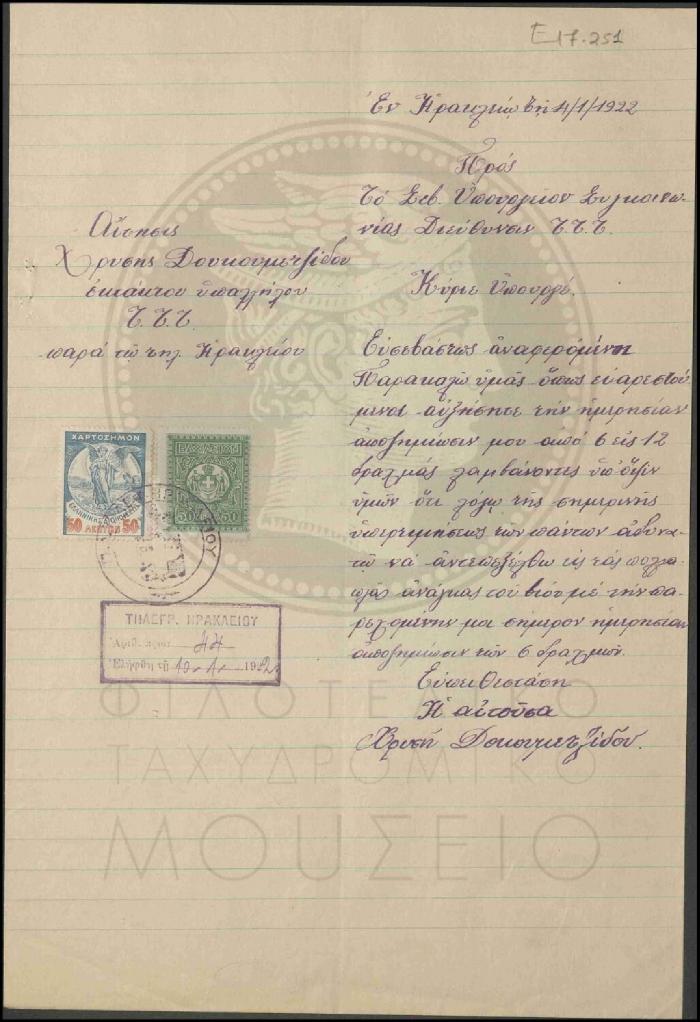 E17.251
Ἐν Ἡρακλείῳ τῇ 4/1/1922
Πρός
Τό Σεβ. Ὑπουργεῖον Συγκοινω
νίας Διεύθυνσιν Τ.Τ.Τ
Αἴτησις
Χρυσῆς Δουκουμετζίδου
ἐκτάκτου ὑπαλλήλου
Τ.Τ.Τ.
παρά τῷ τηλ. Ἡρακλείου
Κύριε Ὑπουργέ.
Εὐσεβάστως ἀναφερόμενη
Παρακαλῶ ὑμᾶς ὅπως εὐαρεστού
μενοι αὐξήσητε τήν ἡμερησίαν
ἀποζημίωσιν μου ἀπό 6 εἰς 12
δραχμάς λαμβάνοντες ὑπ' ὄψιν
ὑμῶν ὅτι λόγῳ τῆς σημερινῆς
ὑπερτιμήσεως τῶν πάντων ἀδυνα
τῶ νά ἀντεπεξέλθω εἰς τάς πολλα
πλάς ἀνάγκας τοῦ βίου μέ τήν πα
ρεχομένην μοι σήμερον ἡμερησίαν
ἀποζημίωσιν τῶν 6 δραχμῶν.
Εὐπειθεστάτη
Ἡ αἰτοῦσα
Χρυσῆ Δοκουμετζίδου.
ΧΑΡΤΟΣΗΜΟΝ
ΕΛΛΗΝΙΚΗ ΔΗΜΟΚΡΑΤΙΑ
50 ΛΕΠΤΩΝ 50
ΒΑΣΙΛΕΙΟΝ
50 50
ΗΡΑΚΛΕΙΟΥ
ΤΗΛΕΓΡ. ΗΡΑΚΛΕΙΟΥ
Ἀριθ. πρωτ. 44
Ἐλήφθη τῇ 10-1-1922
ΦΙΛΟΤΕΛΙΚΟ
ΤΑΧΥΔΡΟΜΙΚΟ
ΜΟΥΣΕΙΟ